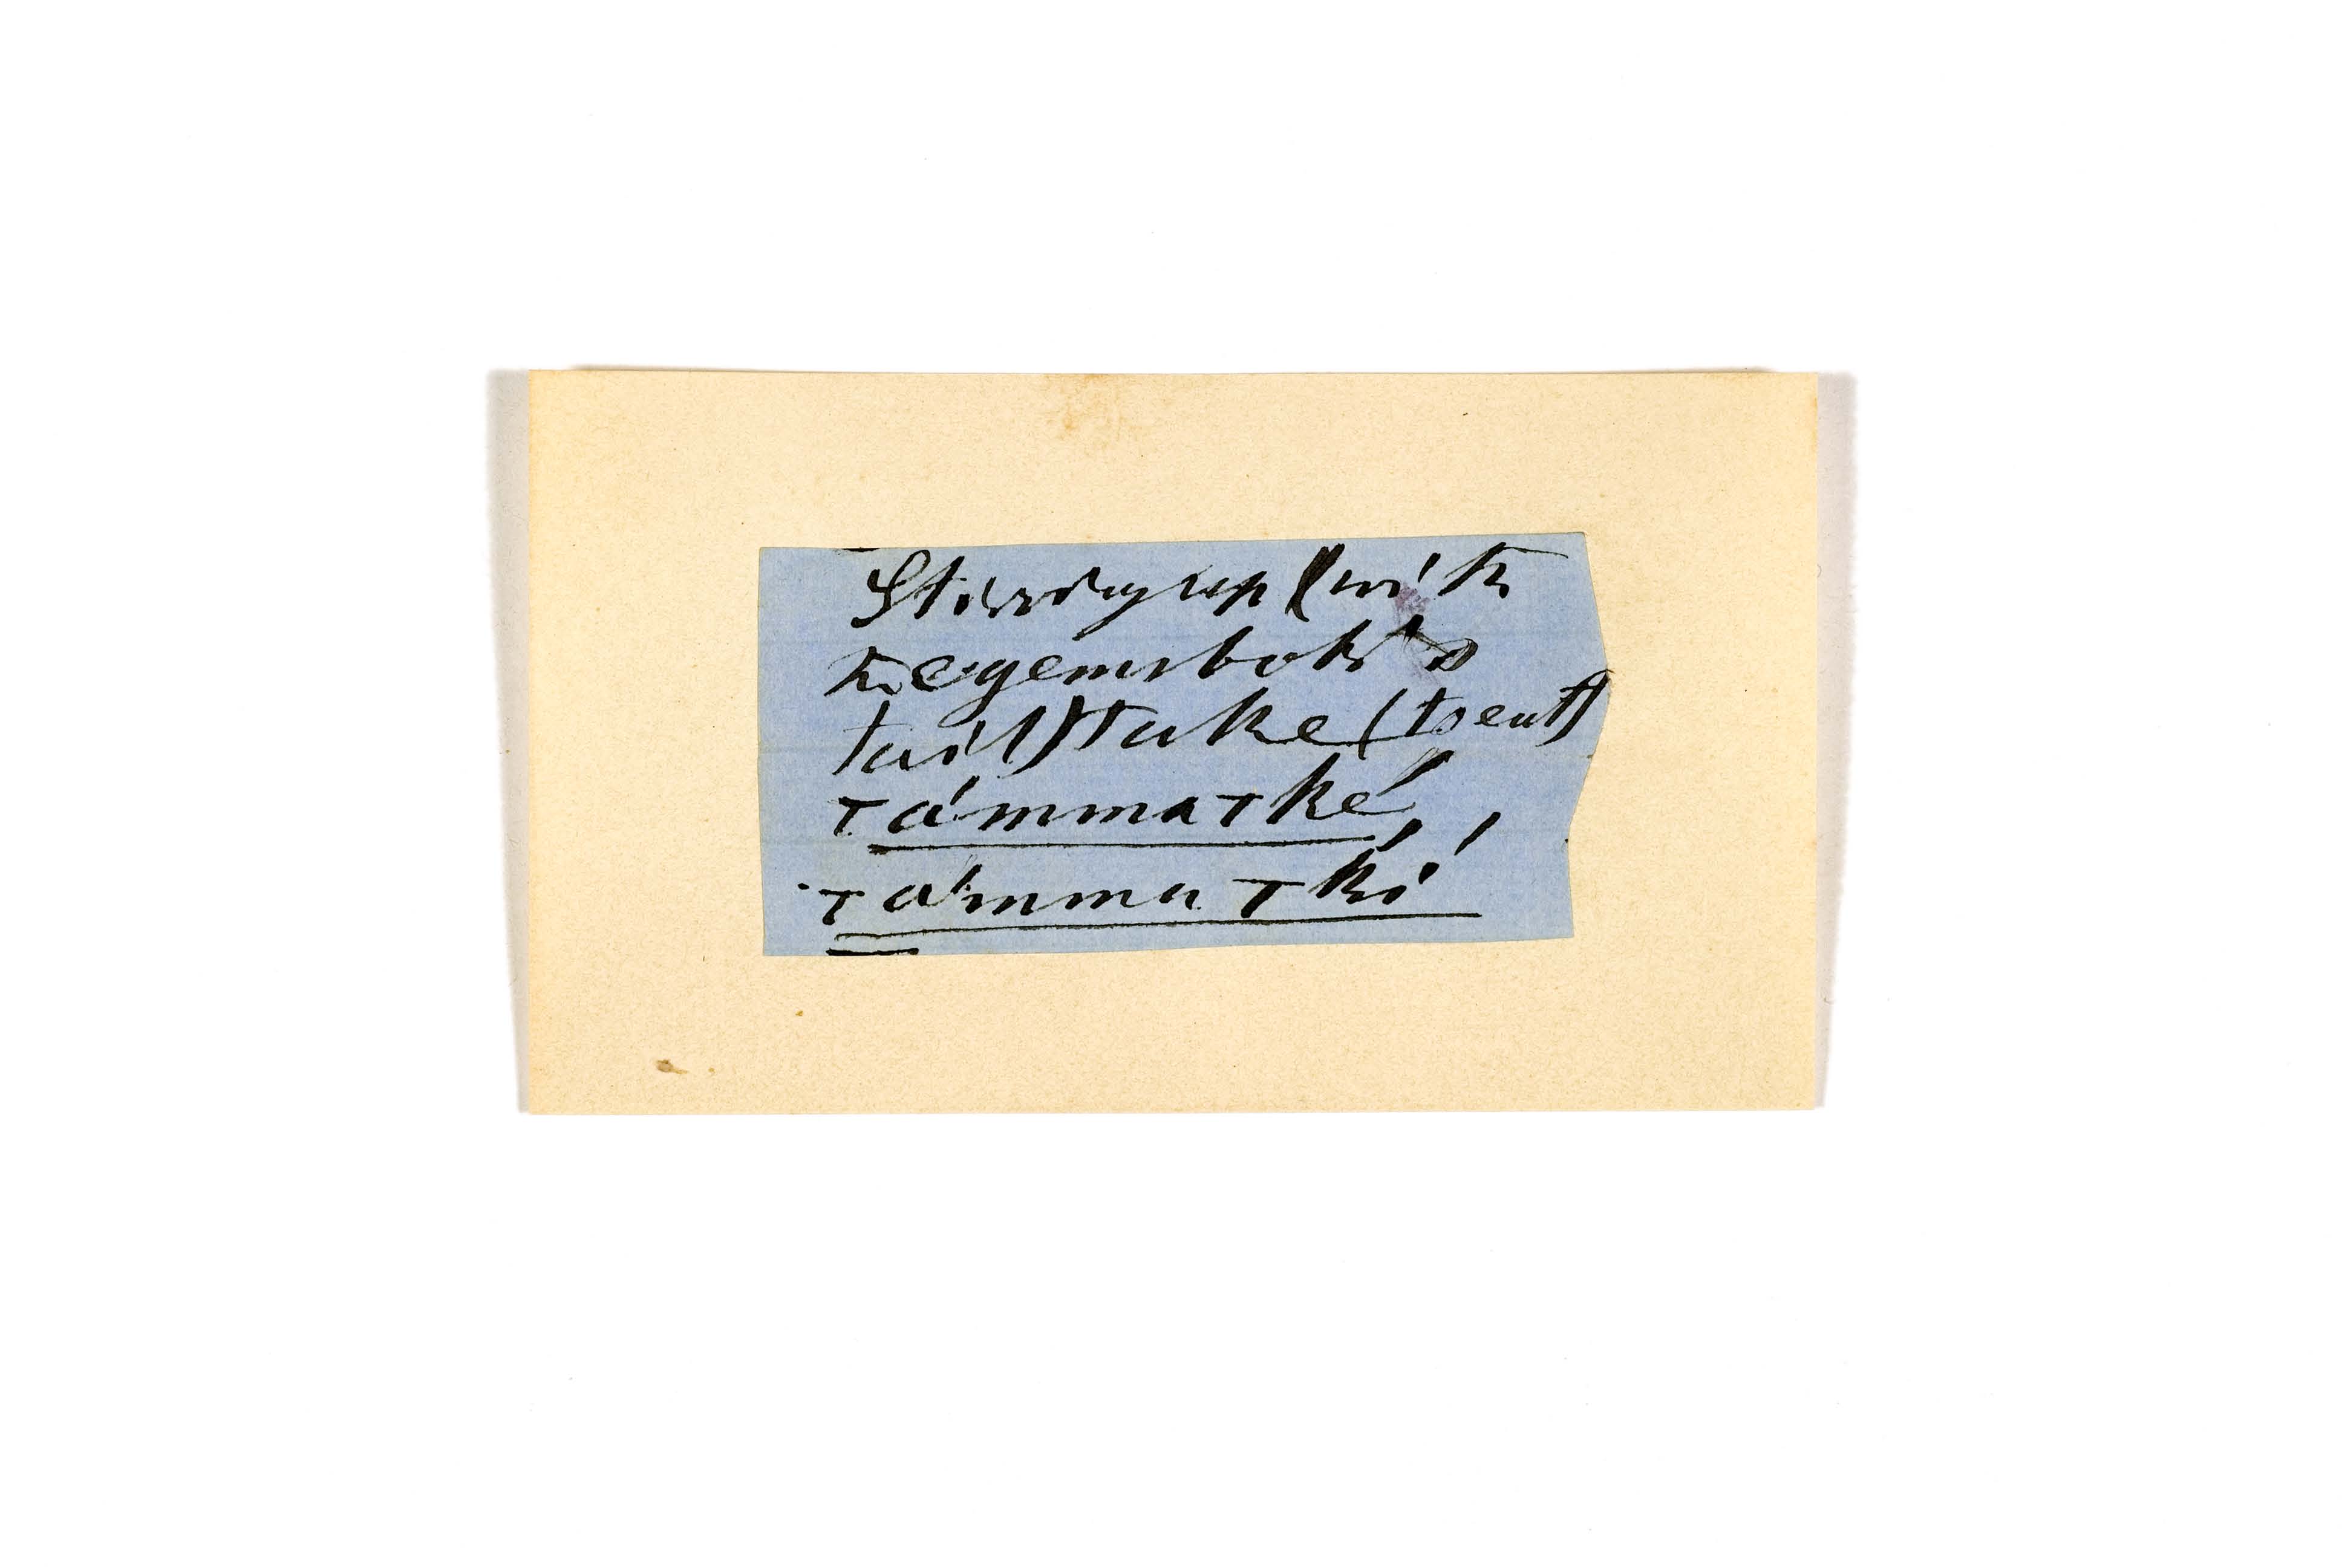 Stirring up (with
the gemsbok's
tail) take (to eat)
támmaτké
támmaτkí